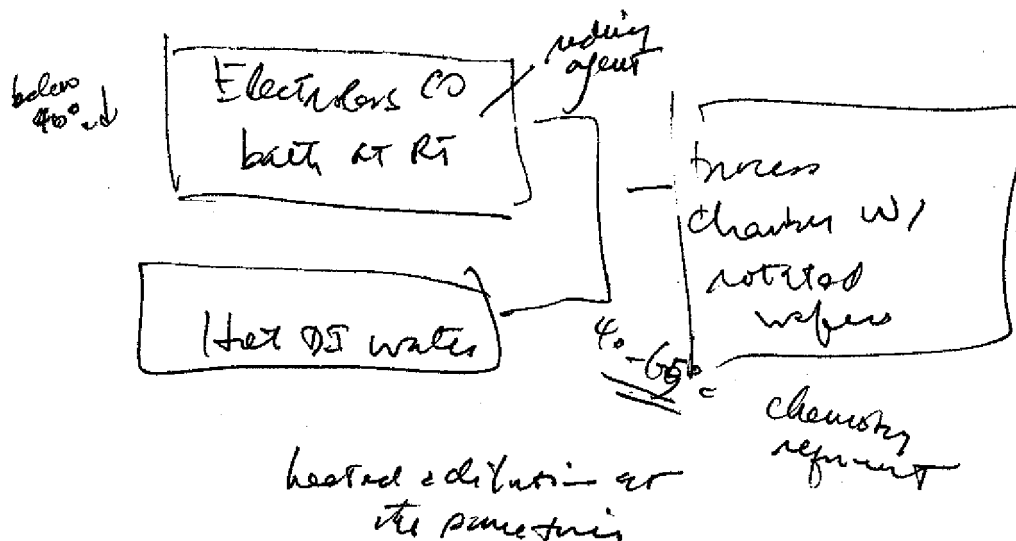 below
40°
Electroless CO
bath at RT
reducing
agent
Hot DI water
process
chamber w/
rotated
wafers
40-65°C
chemistry
heated & dilution at
the same time